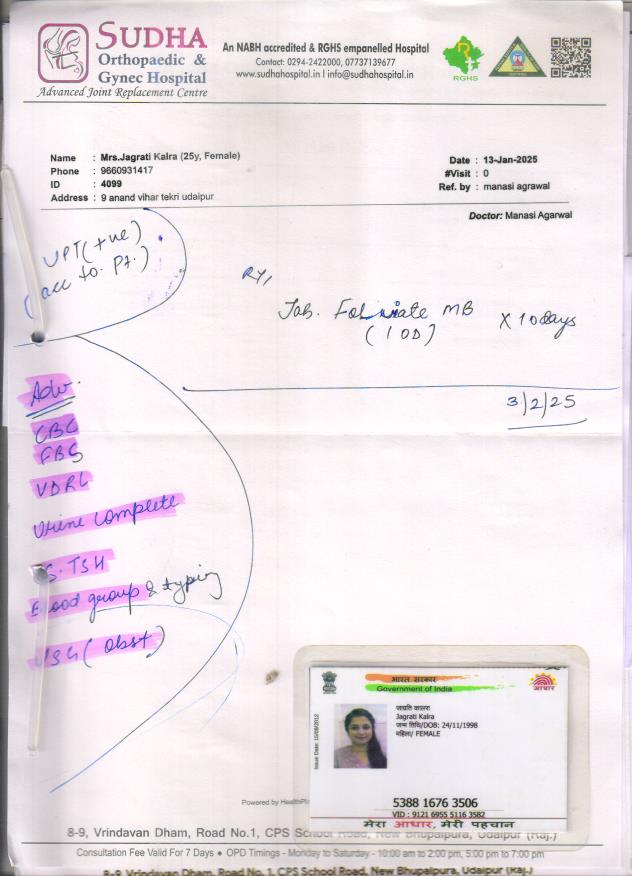 SUDHA
Orthopaedic &
Gynec Hospital
Advanced Joint Replacement Centre
An NABH accredited & RGHS empanelled Hospital
Contact: 0294-2422000, 07737139677
www.sudhahospital.in | info@sudhahospital.in
RGHS
Name : Mrs.Jagrati Kalra (25y, Female)
Phone : 9660931417
ID : 4099
Address : 9 anand vihar tekri udaipur
Date : 13-Jan-2025
#Visit : 0
Ref. by : manasi agrawal
Doctor: Manasi Agarwal
UPT (+ve)
(acc to. Pt.)
Tab. Folinate MB X 10 days
(1 OD)
3/2/25
Adv.
CBC
FBS
VDRL
Urine Complete
S. TSH
Blood group & typing
USG (Obst)
भारत सरकार
Government of India
Issue Date: 15/09/2012
जाग्रति कालरा
Jagrati Kalra
जन्म तिथि/DOB: 24/11/1998
महिला/ FEMALE
आधार
5388 1676 3506
VID : 9121 6955 5116 3582
मेरा आधार, मेरी पहचान
Powered by HealthPl
8-9, Vrindavan Dham, Road No.1, CPS School Road, New Bhupalpura, Udaipur (Raj.)
Consultation Fee Valid For 7 Days • OPD Timings - Monday to Saturday - 10:00 am to 2:00 pm, 5:00 pm to 7:00 pm
8-9, Vrindavan Dham, Road No.1, CPS School Road, New Bhupalpura, Udaipur (Raj.)